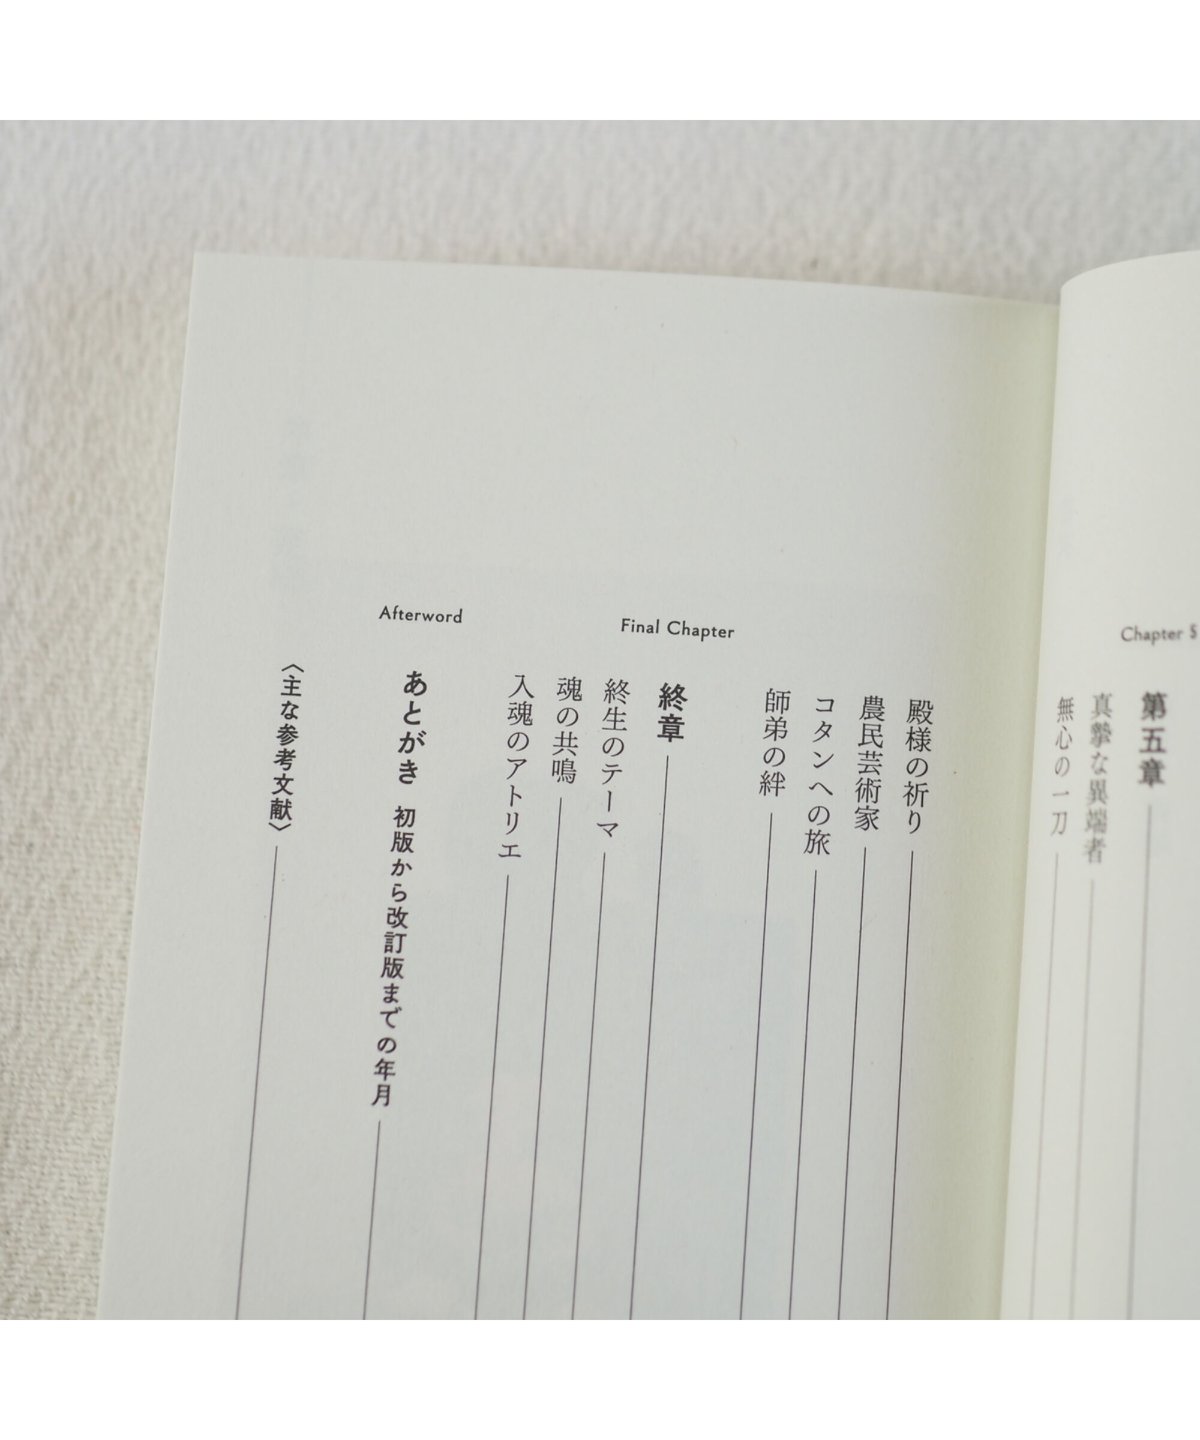 Chapter 5
第五章
真摯な異端者
無心の一刀
殿様の祈り
農民芸術家
コタンへの旅
師弟の絆
Final Chapter
終章
終生のテーマ
魂の共鳴
入魂のアトリエ
Afterword
あとがき 初版から改訂版までの年月
〈主な参考文献〉